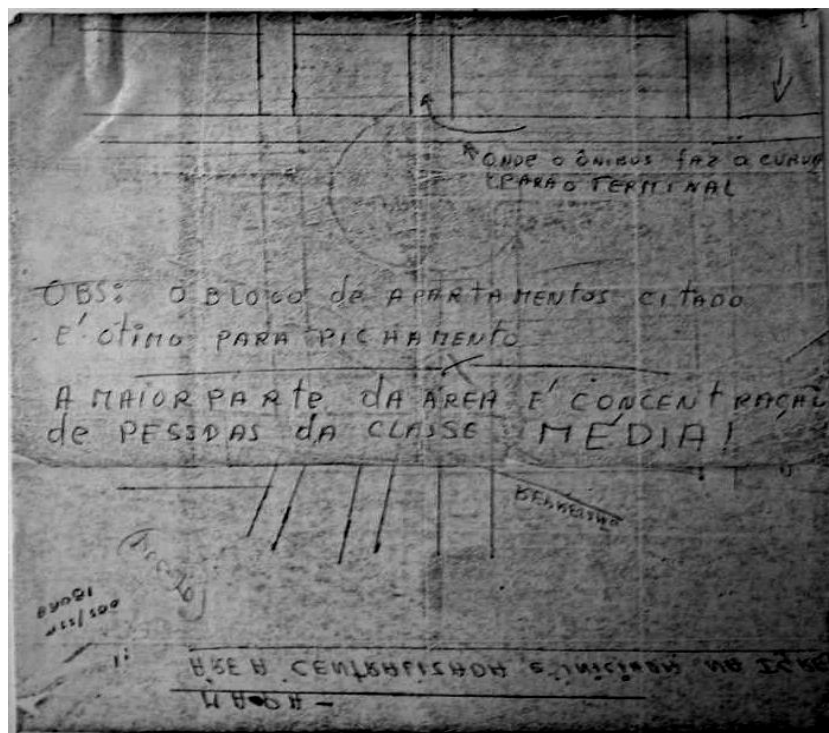 ONDE O ÔNIBUS FAZ A CURVA
PARA O TERMINAL
OBS: O BLOCO de APARTAMENTOS CITADO
E' OTIMO PARA PICHAMENTO
A MAIOR PARTE dA ÁREA E' CONCENTRAÇÃO
de PESSOAS dA CLASSE MÉDIA!
REPRESSÃO
1:
ÁREA CENTRALIZADA e INICIADA NA IGRE
MAPA -